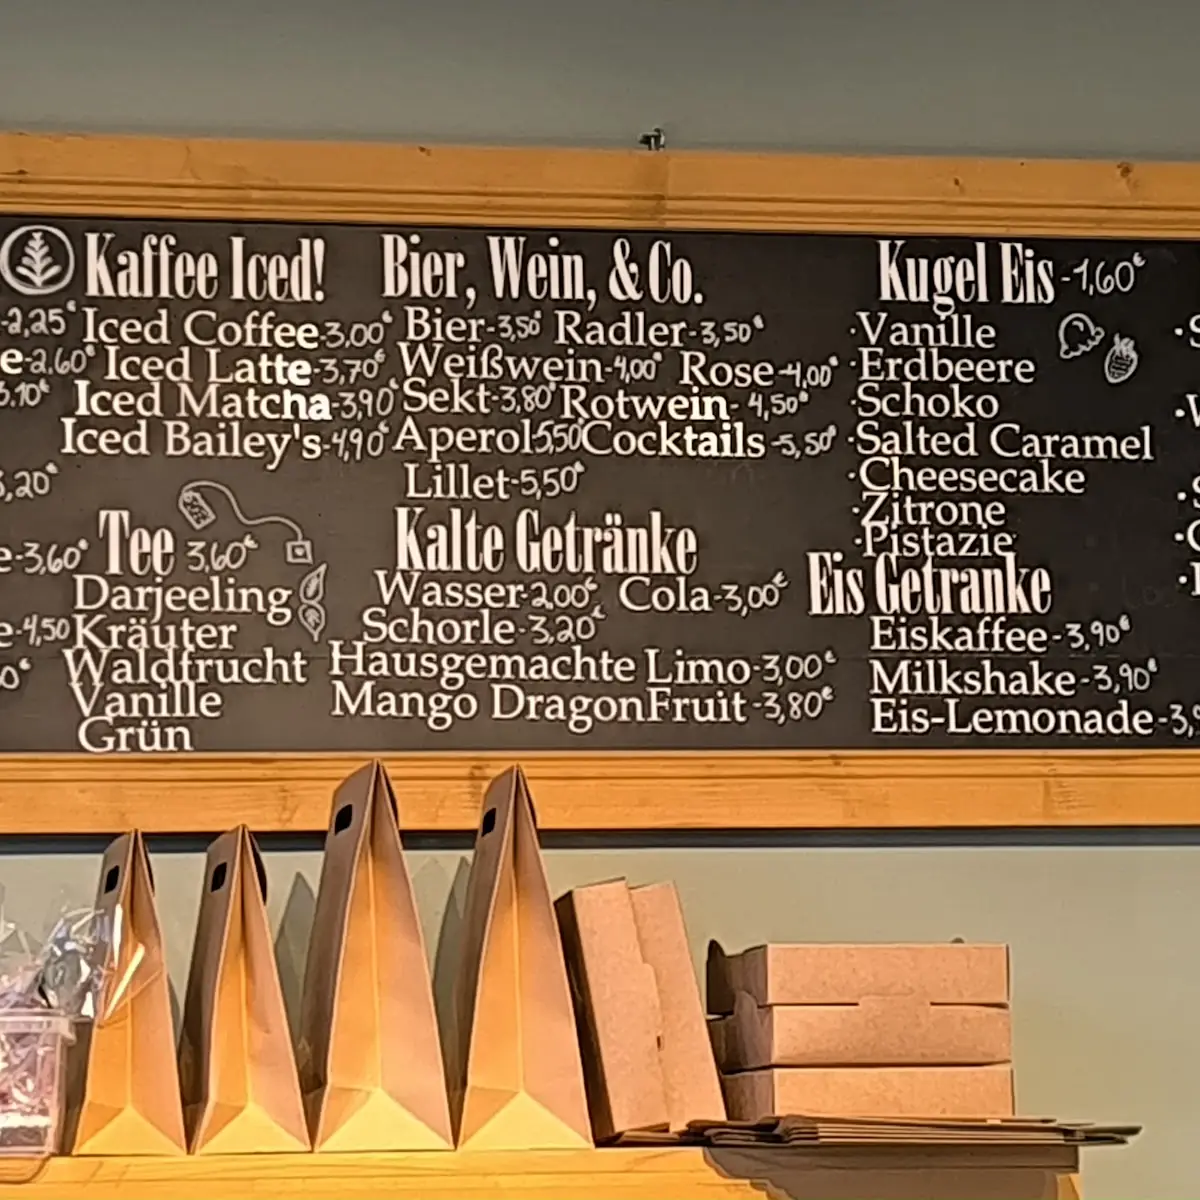 Kaffee Iced!
Iced Coffee-3,00€
Iced Latte-3,70€
Iced Matcha-3,90€
Iced Bailey's-4,90€
Tee 3,60€
Darjeeling
Kräuter
Waldfrucht
Vanille
Grün
-2,25€
e-2,60€
3,20€
e-3,60€
e-4,50
0€
Bier, Wein, & Co.
Bier-3,50€ Radler-3,50€
Weißwein-4,00€ Rose-4,00€
Sekt-3,80€ Rotwein-4,50€
Aperol5,50€Cocktails-5,50€
Lillet-5,50€
Kalte Getränke
Wasser-2,00€ Cola-3,00€
Schorle-3,20€
Hausgemachte Limo-3,00€
Mango DragonFruit-3,80€
Kugel Eis-1,60€
·Vanille
·Erdbeere
·Schoko
·Salted Caramel
·Cheesecake
·Zitrone
·Pistazie
Eis Getranke
Eiskaffee-3,90€
Milkshake-3,90€
Eis-Lemonade-3,9